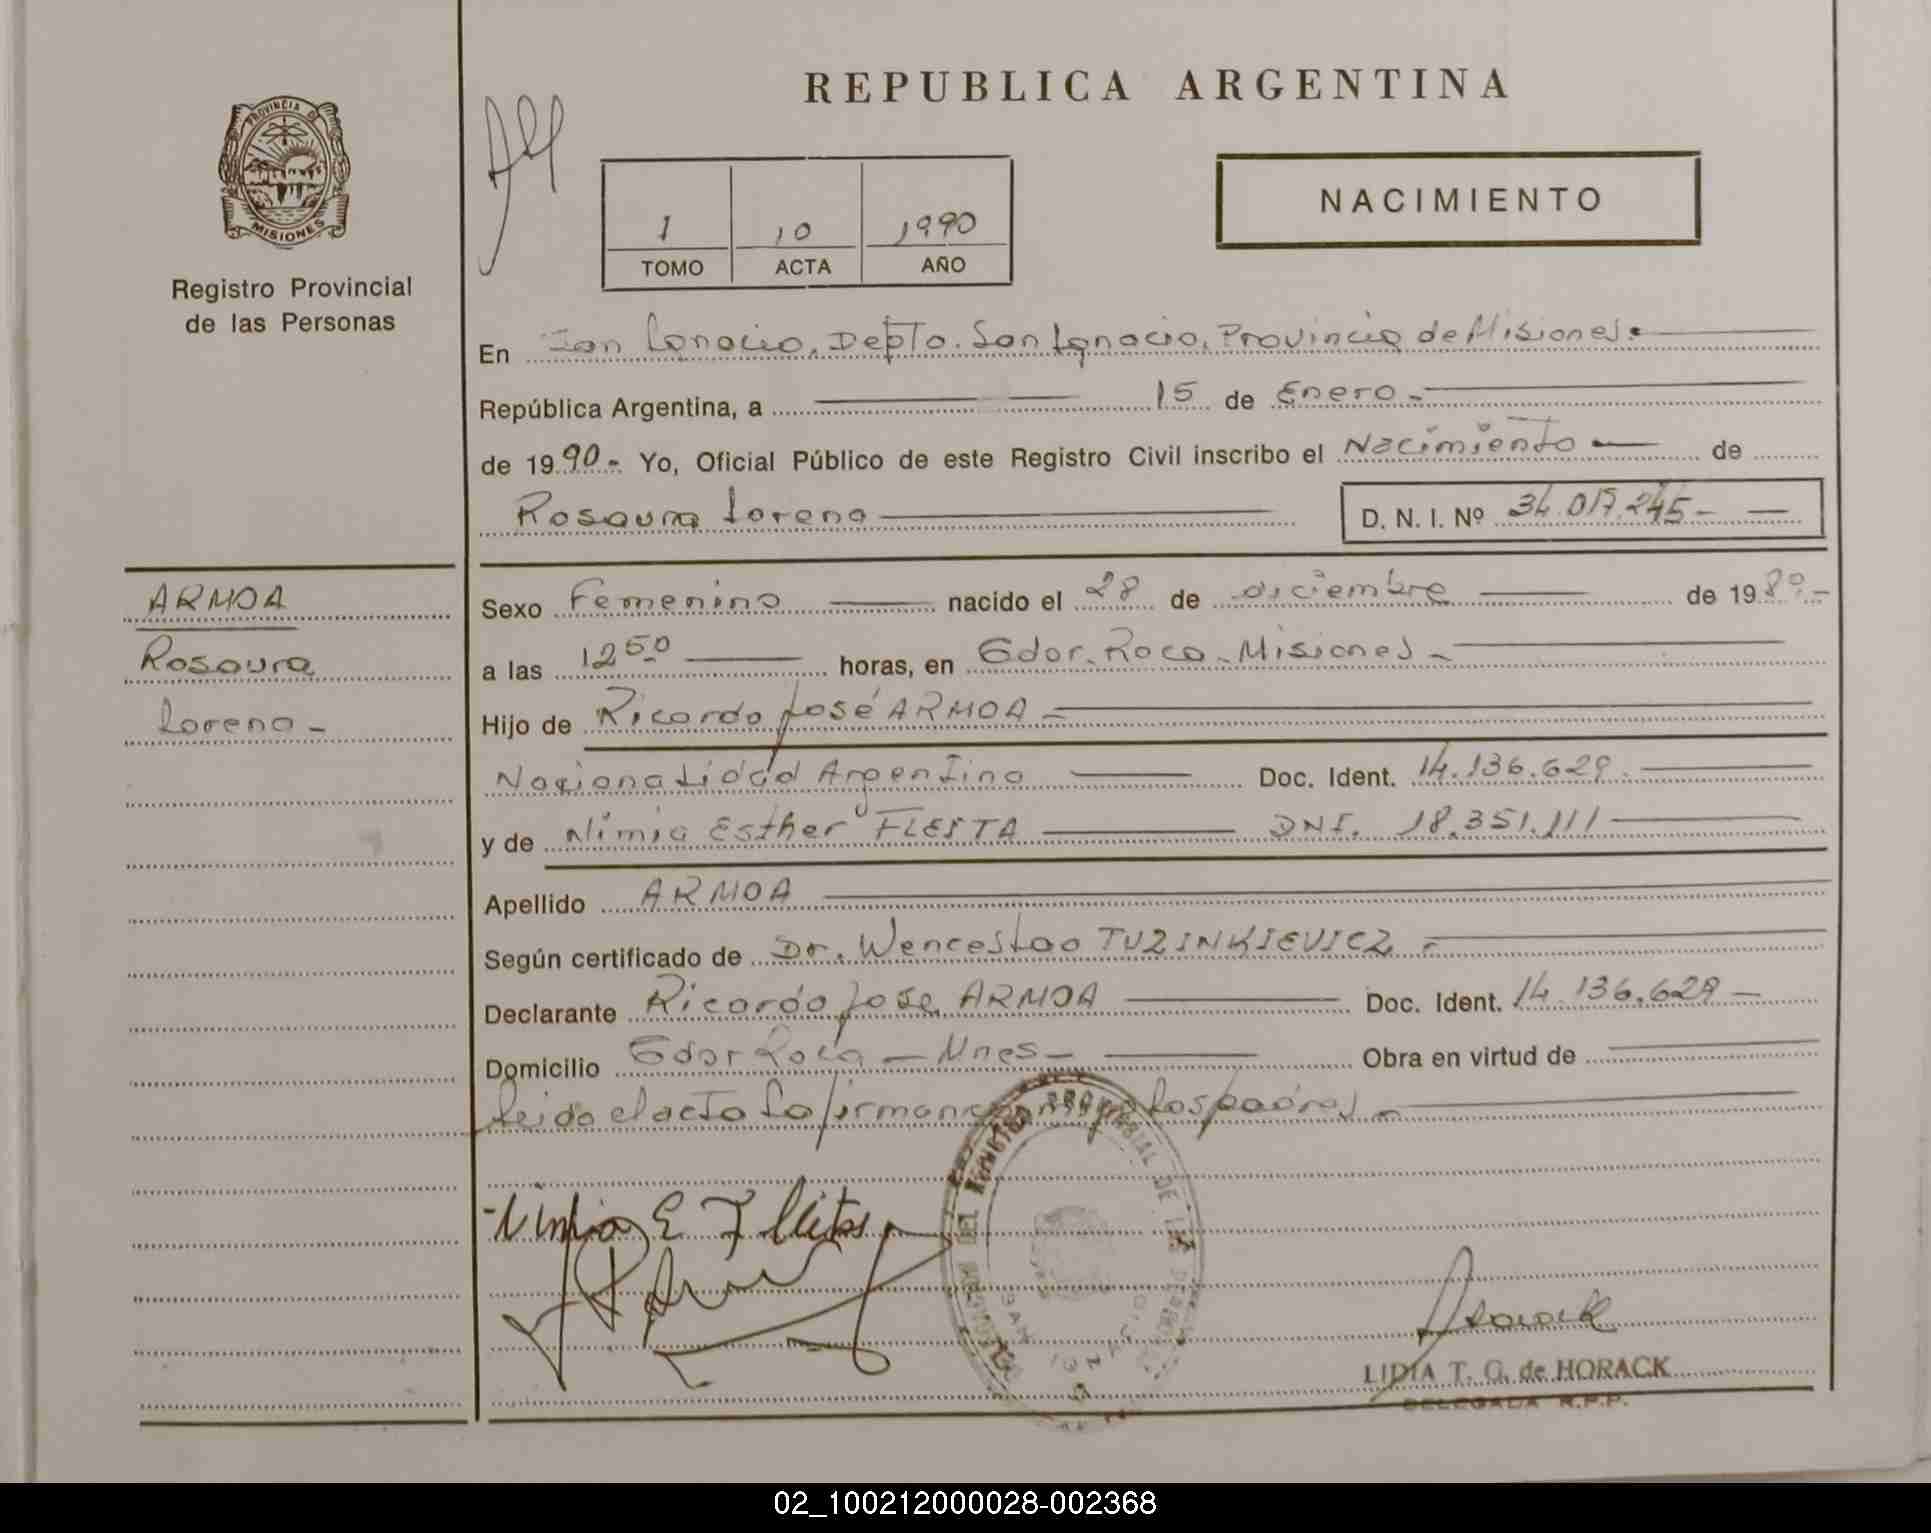 REPUBLICA ARGENTINA
PROVINCIA DE
MISIONES
Registro Provincial
de las Personas
1 10 1990
TOMO ACTA AÑO
NACIMIENTO
En San Ignacio, Depto. San Ignacio, Provincia de Misiones.
República Argentina, a 15 de Enero -
de 1990 - Yo, Oficial Público de este Registro Civil inscribo el Nacimiento de
Rosaura Lorena D. N. I. Nº 34.017.245 -
ARMOA
Rosaura
Lorena -
Sexo Femenino nacido el 28 de diciembre de 198
a las 12 50 horas, en Gdor. Roca - Misiones -
Hijo de Ricardo José ARMOA -
Nacionalidad Argentina Doc. Ident. 14.136.629.
y de Nimia Esther DNI. 18.351.111
Apellido ARMOA
Según certificado de Dr. Wenceslao TUZINKIEVICZ -
Declarante Ricardo Jose ARMOA Doc. Ident. 14.136.629 -
Domicilio Gdor Roca - Mnes - Obra en virtud de
Leida el acta la firman los padres -
Nimia E
REGISTRO PROVINCIAL DE LAS
LIDIA T. G. de HORACK
DELEGADA R.P.P.
02_100212000028-002368